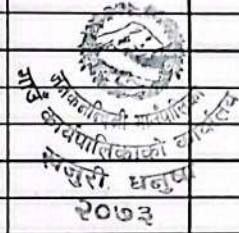 जनकनन्दिनी गाउँपालिका
गाउँ कार्यपालिकाको कार्यालय
खजुरी, धनुषा
२०७३